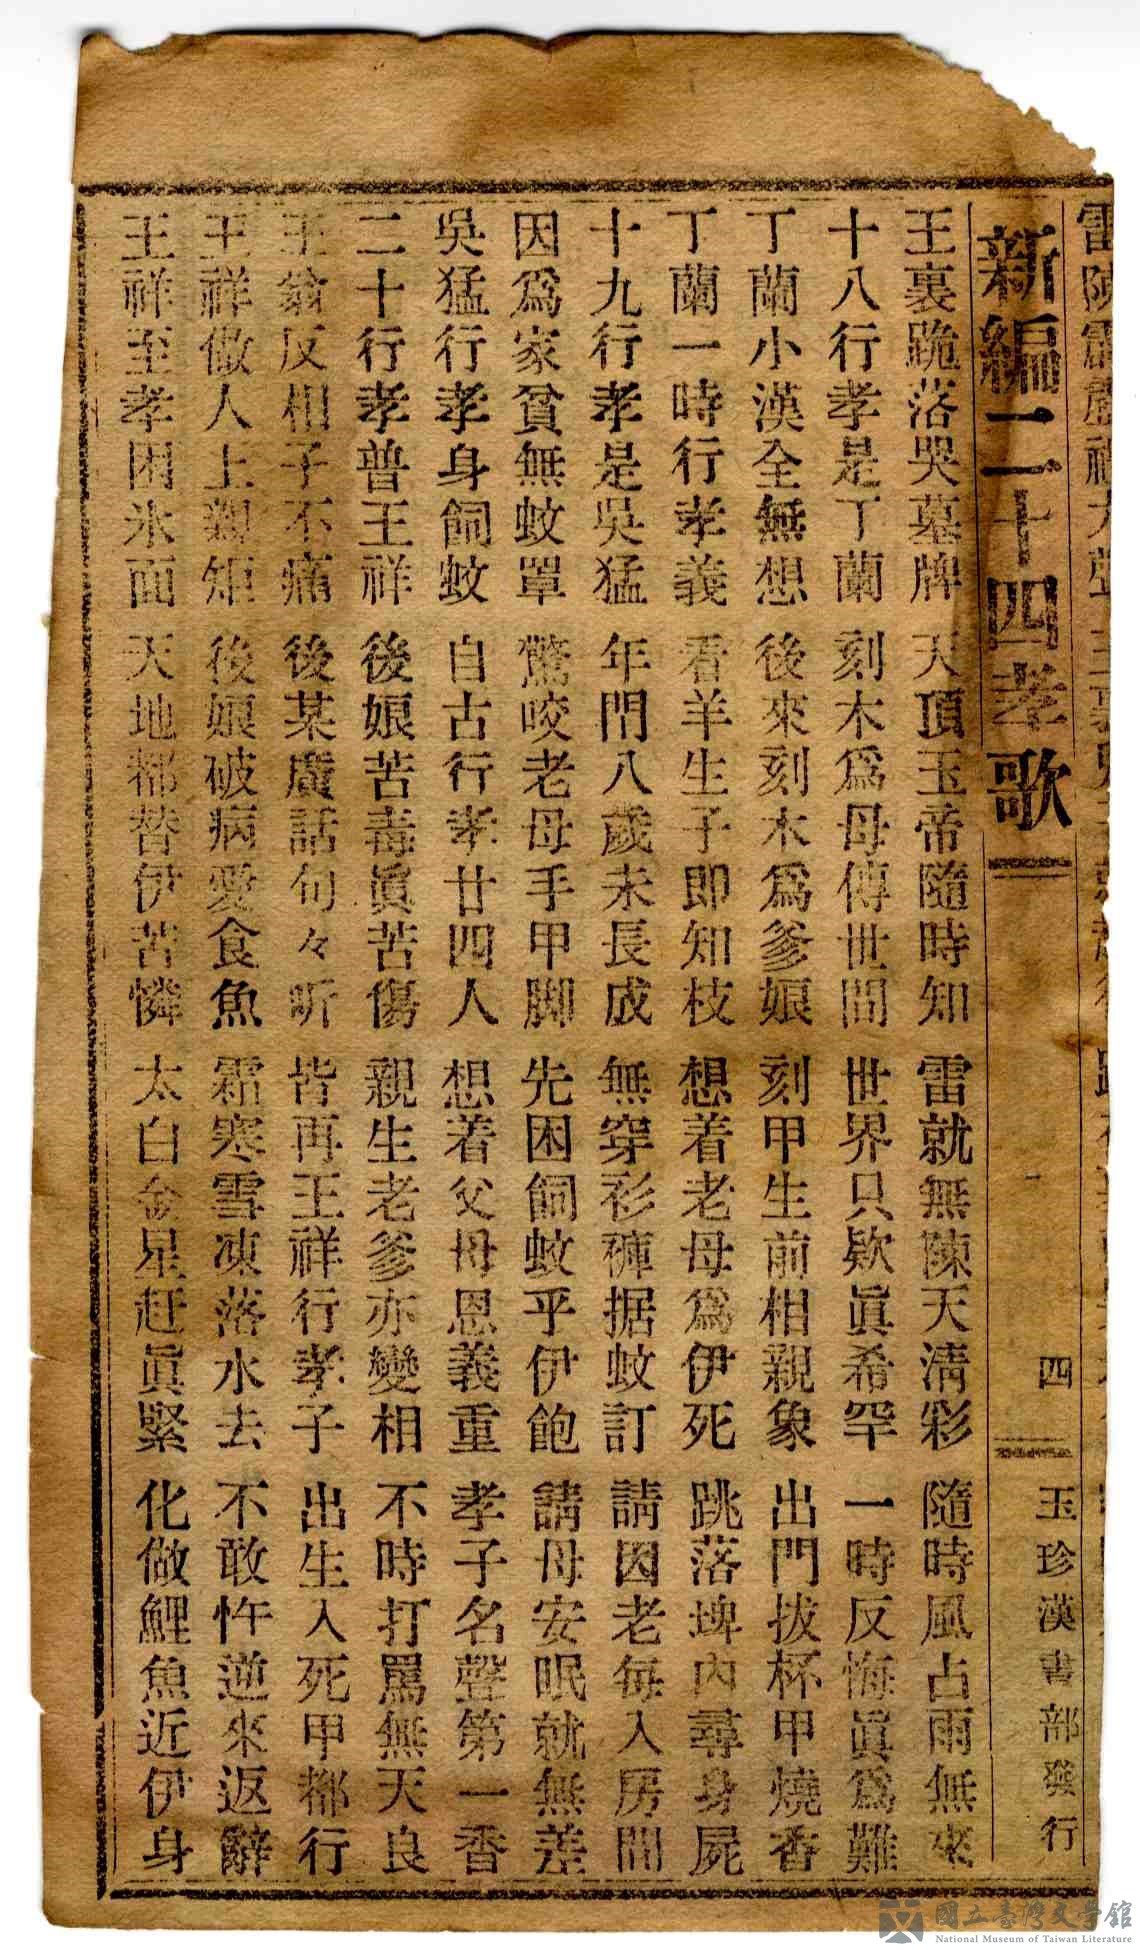 新編二十四孝歌
四
玉珍漢書部發行
王裏跪落哭墓牌 天頂玉帝隨時知 雷就無陳天淸彩 隨時風占雨無來
十八行孝是丁蘭 刻木爲母傳世間 世界只欵眞希罕 一時反悔眞爲難
丁蘭小漢全無想 後來刻木爲爹娘 刻甲生前相親象 出門拔杯甲燒香
丁蘭一時行孝義 看羊生子即知枝 想着老母爲伊死 跳落埤內尋身屍
十九行孝是吳猛 年閂八歲未長成 無穿衫褲据蚊訂 請因老每入房間
因爲家貧無蚊罩 驚咬老母手甲脚 先困飼蚊乎伊飽 請母安眠就無差
吳猛行孝身飼蚊 自古行孝廿四人 想着父母恩義重 孝子名聲第一香
二十行孝普王祥 後娘苦毒眞苦傷 親生老爹亦變相 不時打罵無天良
王翁反相子不痛 後某廣話句々听 皆再王祥行孝子 出生入死甲都行
王祥做人上艱矩 後娘破病愛食魚 霜寒雪凍落水去 不敢忤逆來返辭
王祥至孝困氷面 天地都替伊苦憐 太白金星赶眞緊 化做鯉魚近伊身
國立臺灣文學館
National Museum of Taiwan Literature